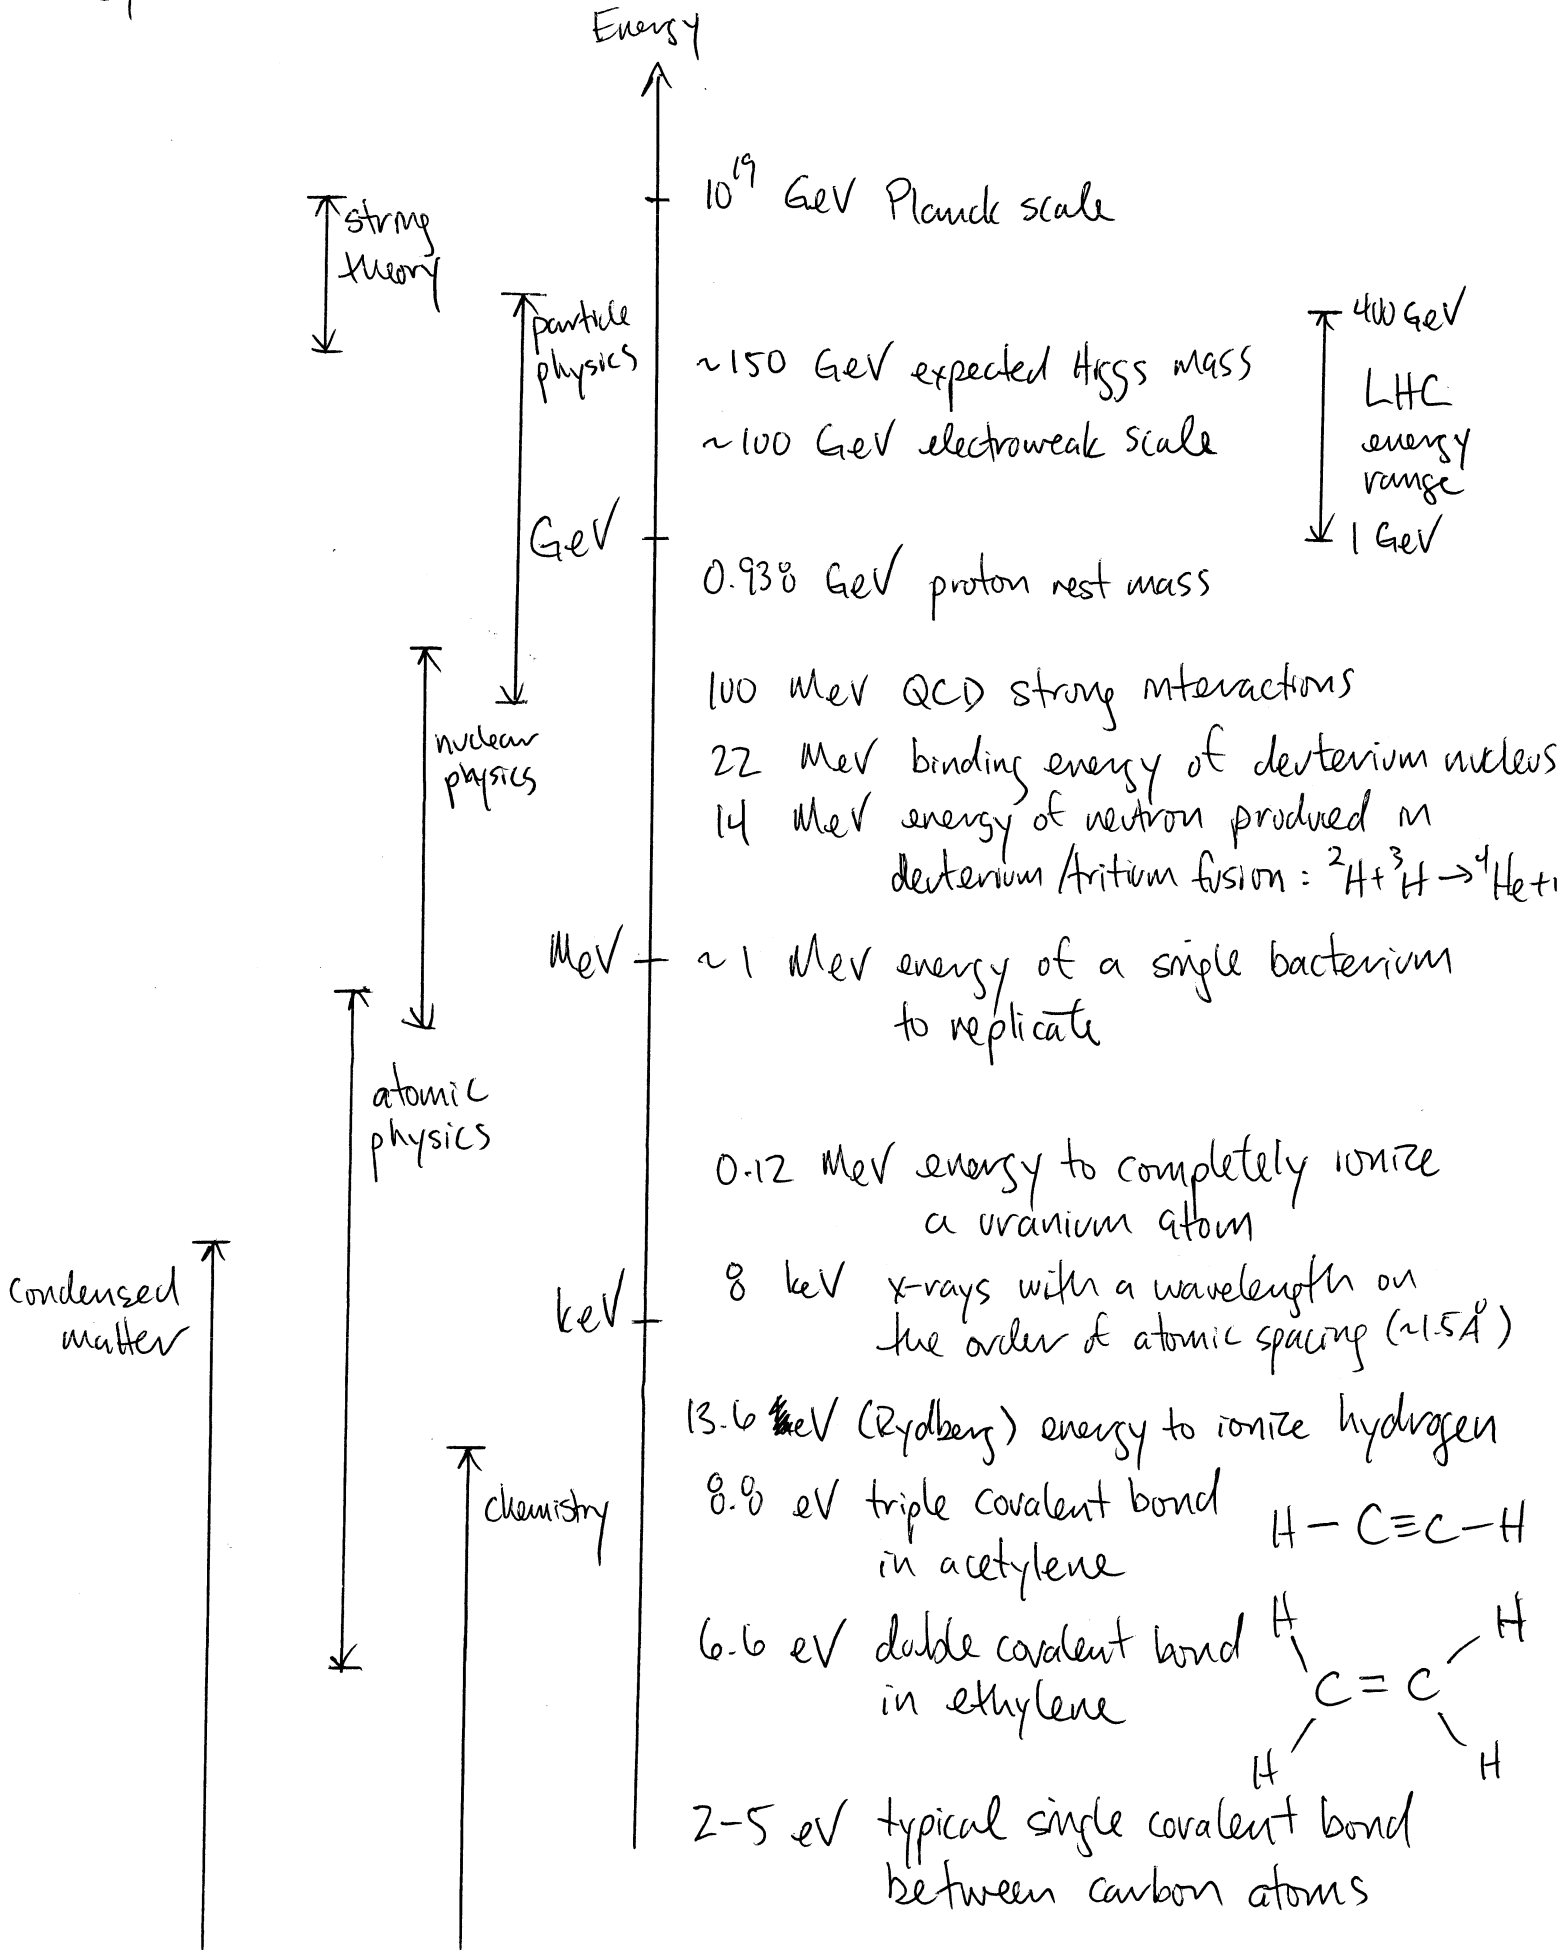 Energy
10¹⁹ GeV Planck scale
string
theory
particle
physics
400 GeV
~150 GeV expected Higgs mass
LHC
energy
range
~100 GeV electroweak scale
GeV
1 GeV
0.938 GeV proton rest mass
100 MeV QCD strong interactions
nuclear
physics
22 MeV binding energy of deuterium nucleus
14 MeV energy of neutron produced in
deuterium/tritium fusion: ²H+³H→⁴He+
MeV
~1 MeV energy of a single bacterium
to replicate
atomic
physics
0.12 MeV energy to completely ionize
a uranium atom
condensed
matter
keV
8 keV x-rays with a wavelength on
the order of atomic spacing (~1.5Å)
13.6 eV (Rydberg) energy to ionize hydrogen
chemistry
8.8 eV triple covalent bond
in acetylene
H-C≡C-H
6.6 eV double covalent bond
in ethylene
H H
C=C
H H
2-5 eV typical single covalent bond
between carbon atoms